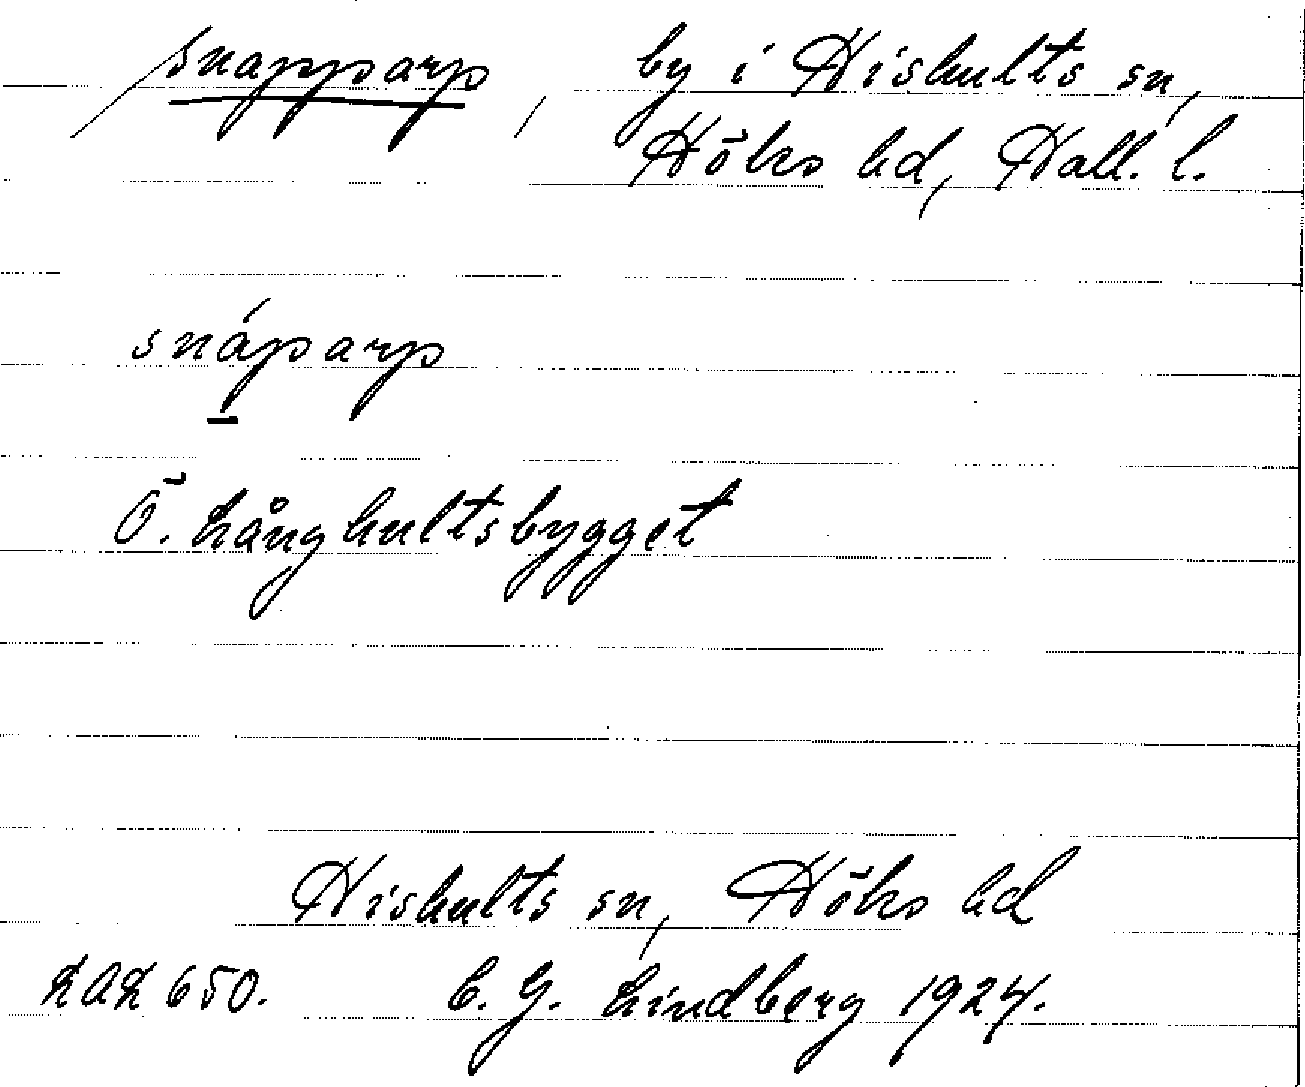 Snapparp, by i Hishults sn,
Höks hd, Hall. l.
snáparp
Ö. Långhultsbygget
Hishults sn, Höks hd
LAL 650. C. G. Lindberg 1924.